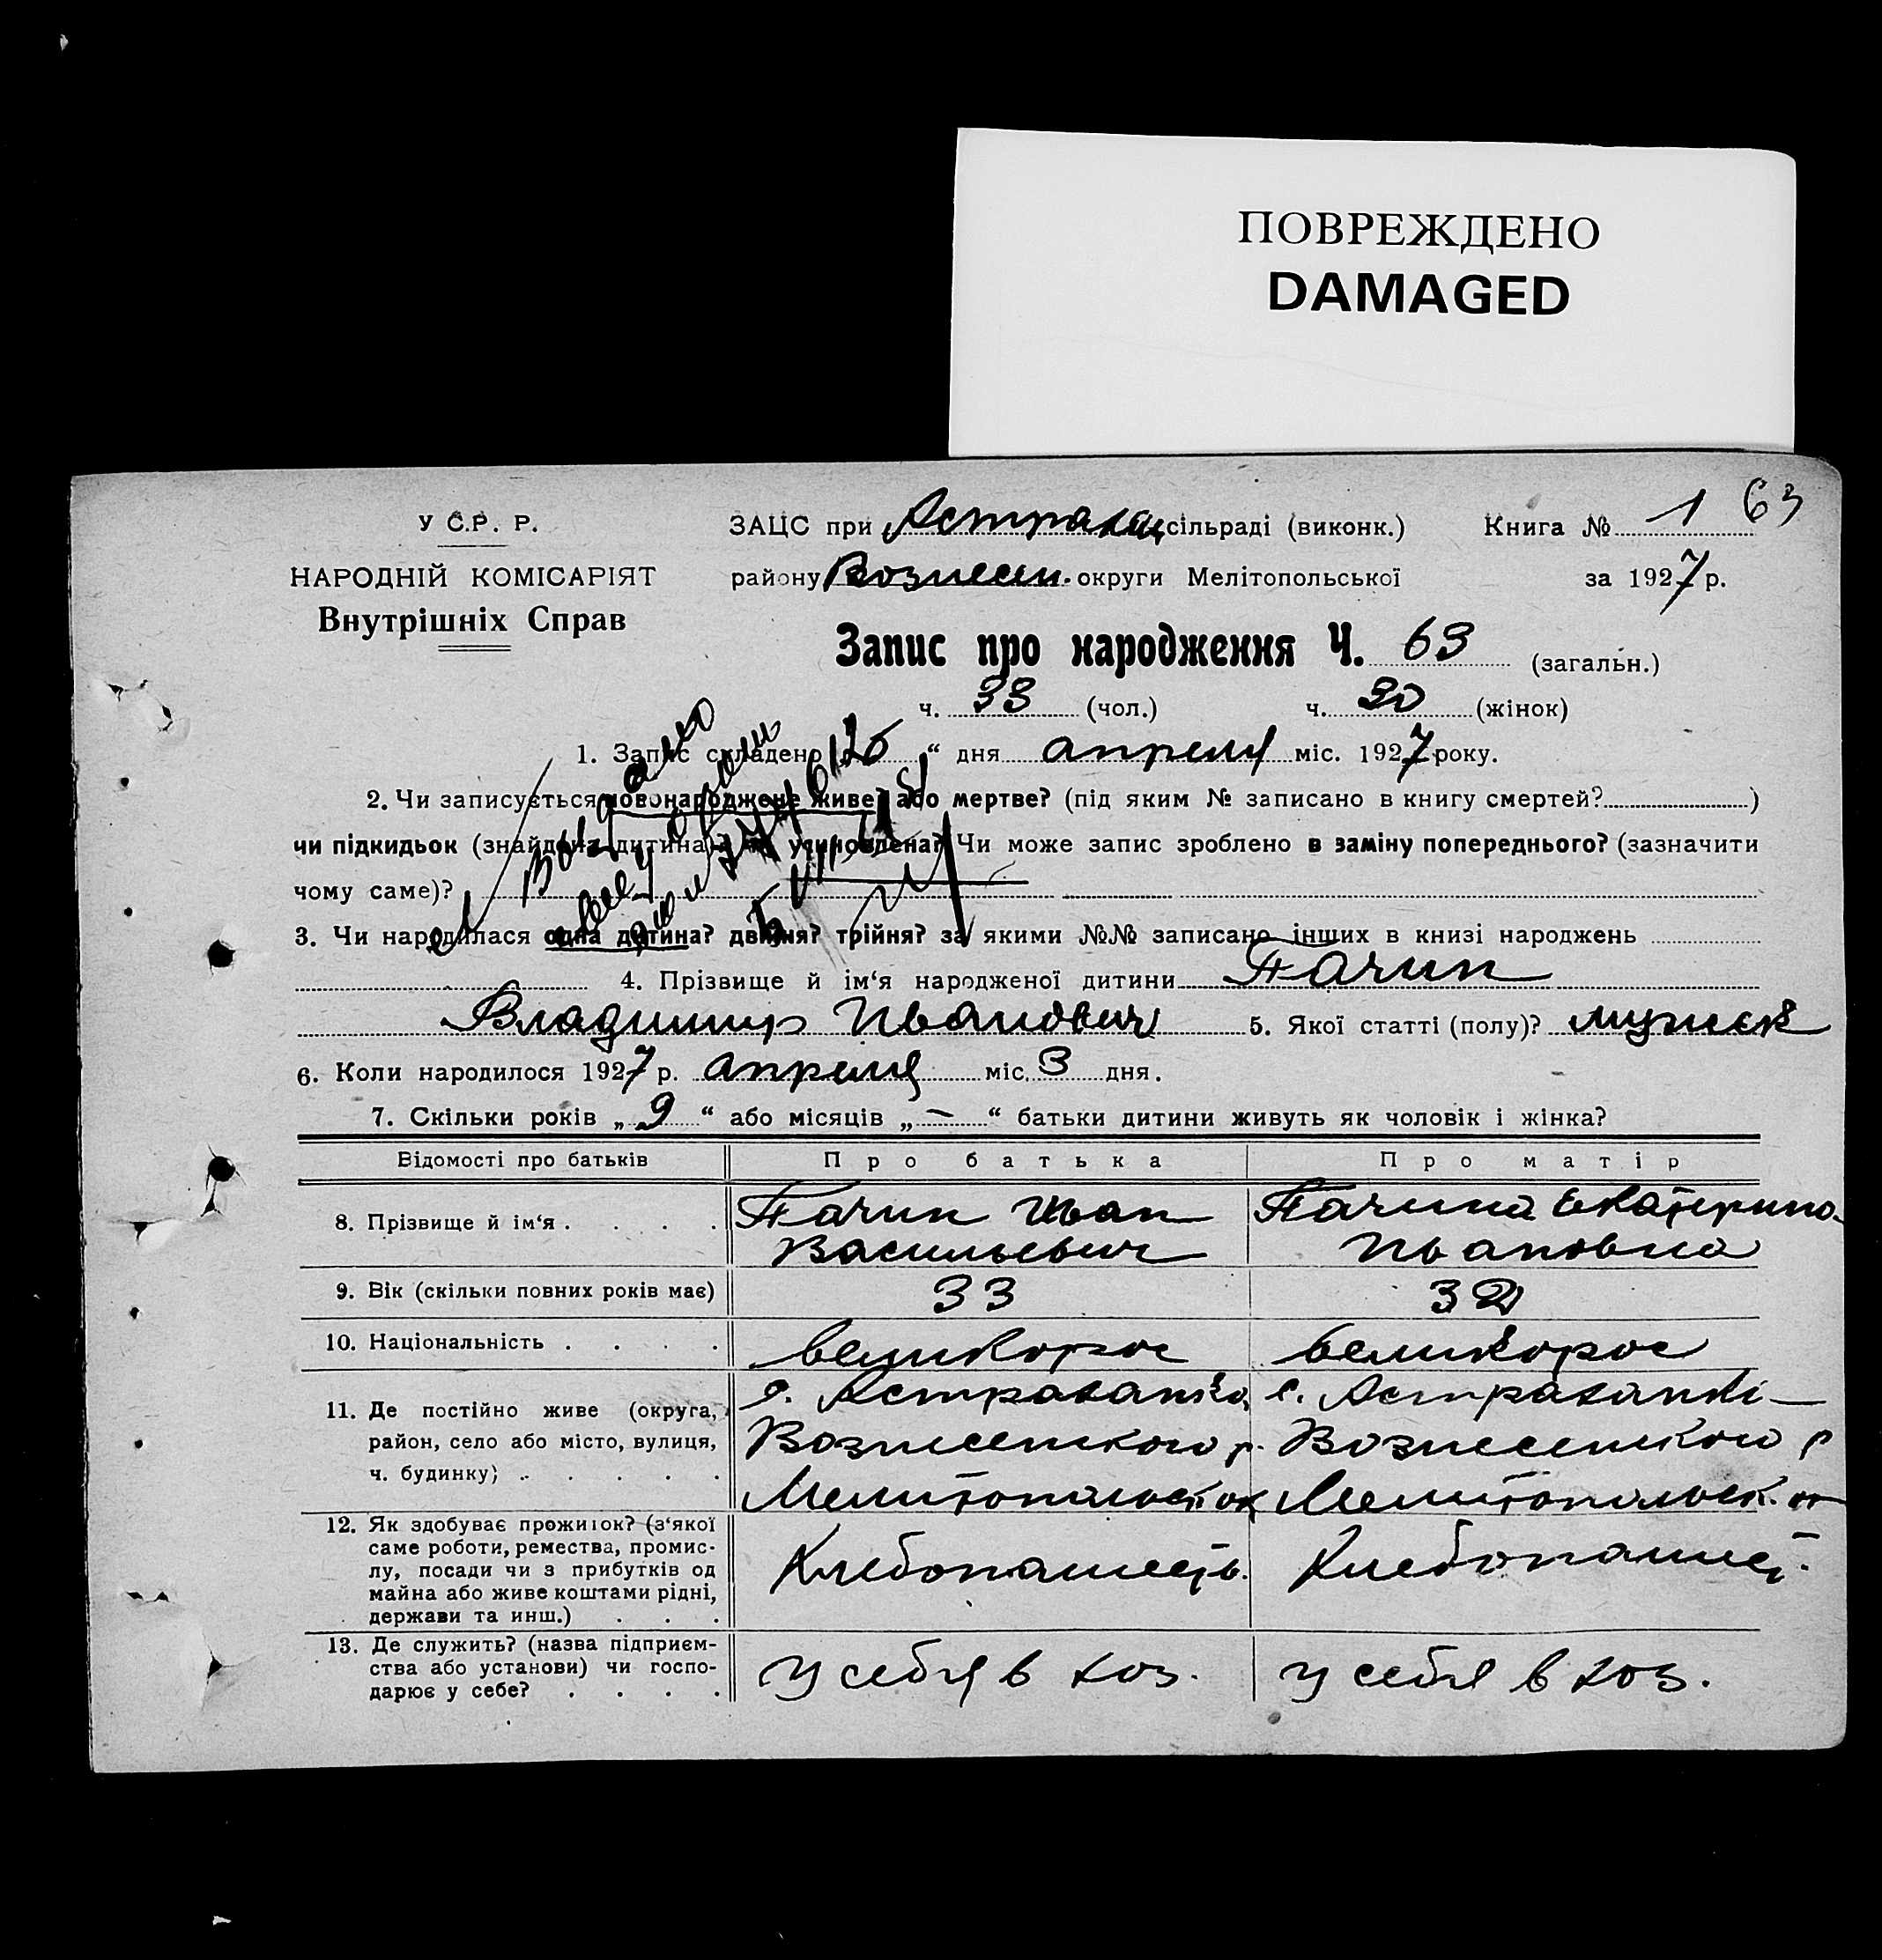 ПОВРЕЖДЕНО
DAMAGED
У С.Р. Р.
НАРОДНІЙ КОМІСАРІЯТ
Внутрішніх Справ
ЗАЦС при Астрахан, сільраді (виконк.) Книга № 1 63
району Вознесен. округи Мелітопольської за 1927 р.
Запис про народження Ч. 63 (загальн.)
ч. 33 (чол.) ч. 30 (жінок)
1. Запис складено „ “ дня апреля міс. 1927 року.
2. Чи записується новонароджене живе? або мертве? (під яким № записано в книгу смертей? )
чи підкидьок (знайдена дитина)? чи усиновлена? Чи може запис зроблено в заміну попереднього? (зазначити
чому саме)?
3. Чи народилася одна дитина? двійня? трійня? за якими №№ записано інших в книзі народжень
4. Прізвище й ім‘я народженої дитини Пачин
Владимир Иванович 5. Якої статті (полу)? мужск
6. Коли народилося 1927 р. апреля міс. 3 дня.
7. Скільки років „ 9 “ або місяців „ — “ батьки дитини живуть як чоловік і жінка?
Відомості про батьків Про батька Про матір
8. Прізвище й ім‘я . . . . Пачин Иван Пачина Екатерина
Васильевич Ивановна
9. Вік (скільки повних років має) 33 32
10. Національність . . . . великорос великорос
11. Де постійно живе (округа, с. Астраханка, с. Астраханкі
район, село або місто, вулиця, Вознесенского р. Вознесенского р
ч. будинку) . . . . . Мелитопольск ок Мелитопольск. ок
12. Як здобуває прожиток? (з‘якої
саме роботи, ремества, промис-
лу, посади чи з прибутків од Хлебопашеств. Хлебопашест.
майна або живе коштами рідні,
держави та инш.) . . .
13. Де служить? (назва підприєм-
ства або установи) чи госпо- У себя в хоз. У себя в хоз.
дарює у себе? . . . .